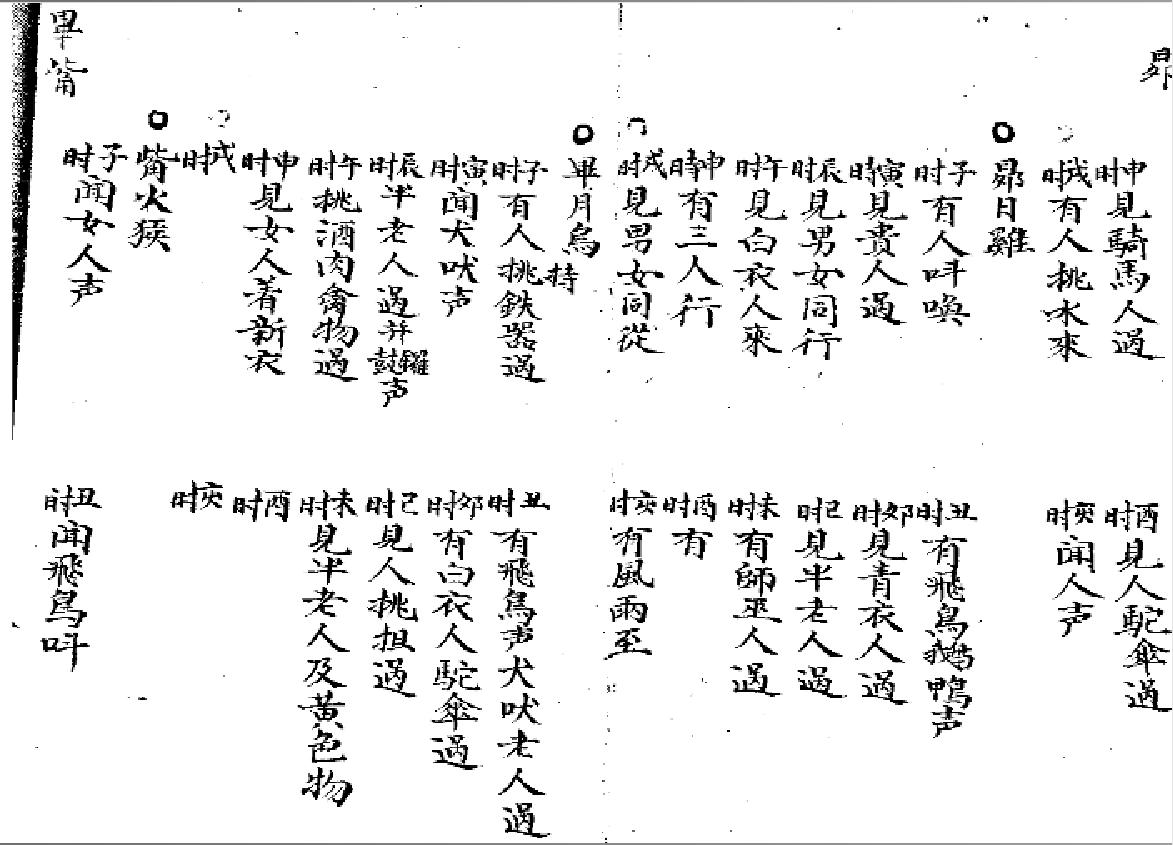 昴
申时見騎馬人過
酉时見人駝傘過
戌时有人挑水來
亥时聞人声
昴日雞
子时有人呌喚
丑时有飛鳥鵝鴨声
寅时見貴人過
卯时見青衣人過
辰时見男女同行
巳时見半老人過
午时見白衣人來
未时有師巫人過
申時有三人行
酉时有
戌时見男女同從
亥时有風雨至
畢月烏
子时有人挑鉄器過
丑时有飛鳥声犬吠老人過
寅时聞犬吠声
卯时有白衣人駝傘過
辰时半老人過并鑼鼓声
巳时見人挑担過
午时挑酒肉禽物過
未时見半老人及黃色物
申时見女人着新衣
酉时
戌时
亥时
觜火猴
子时聞女人声
丑时聞飛鳥呌
畢觜